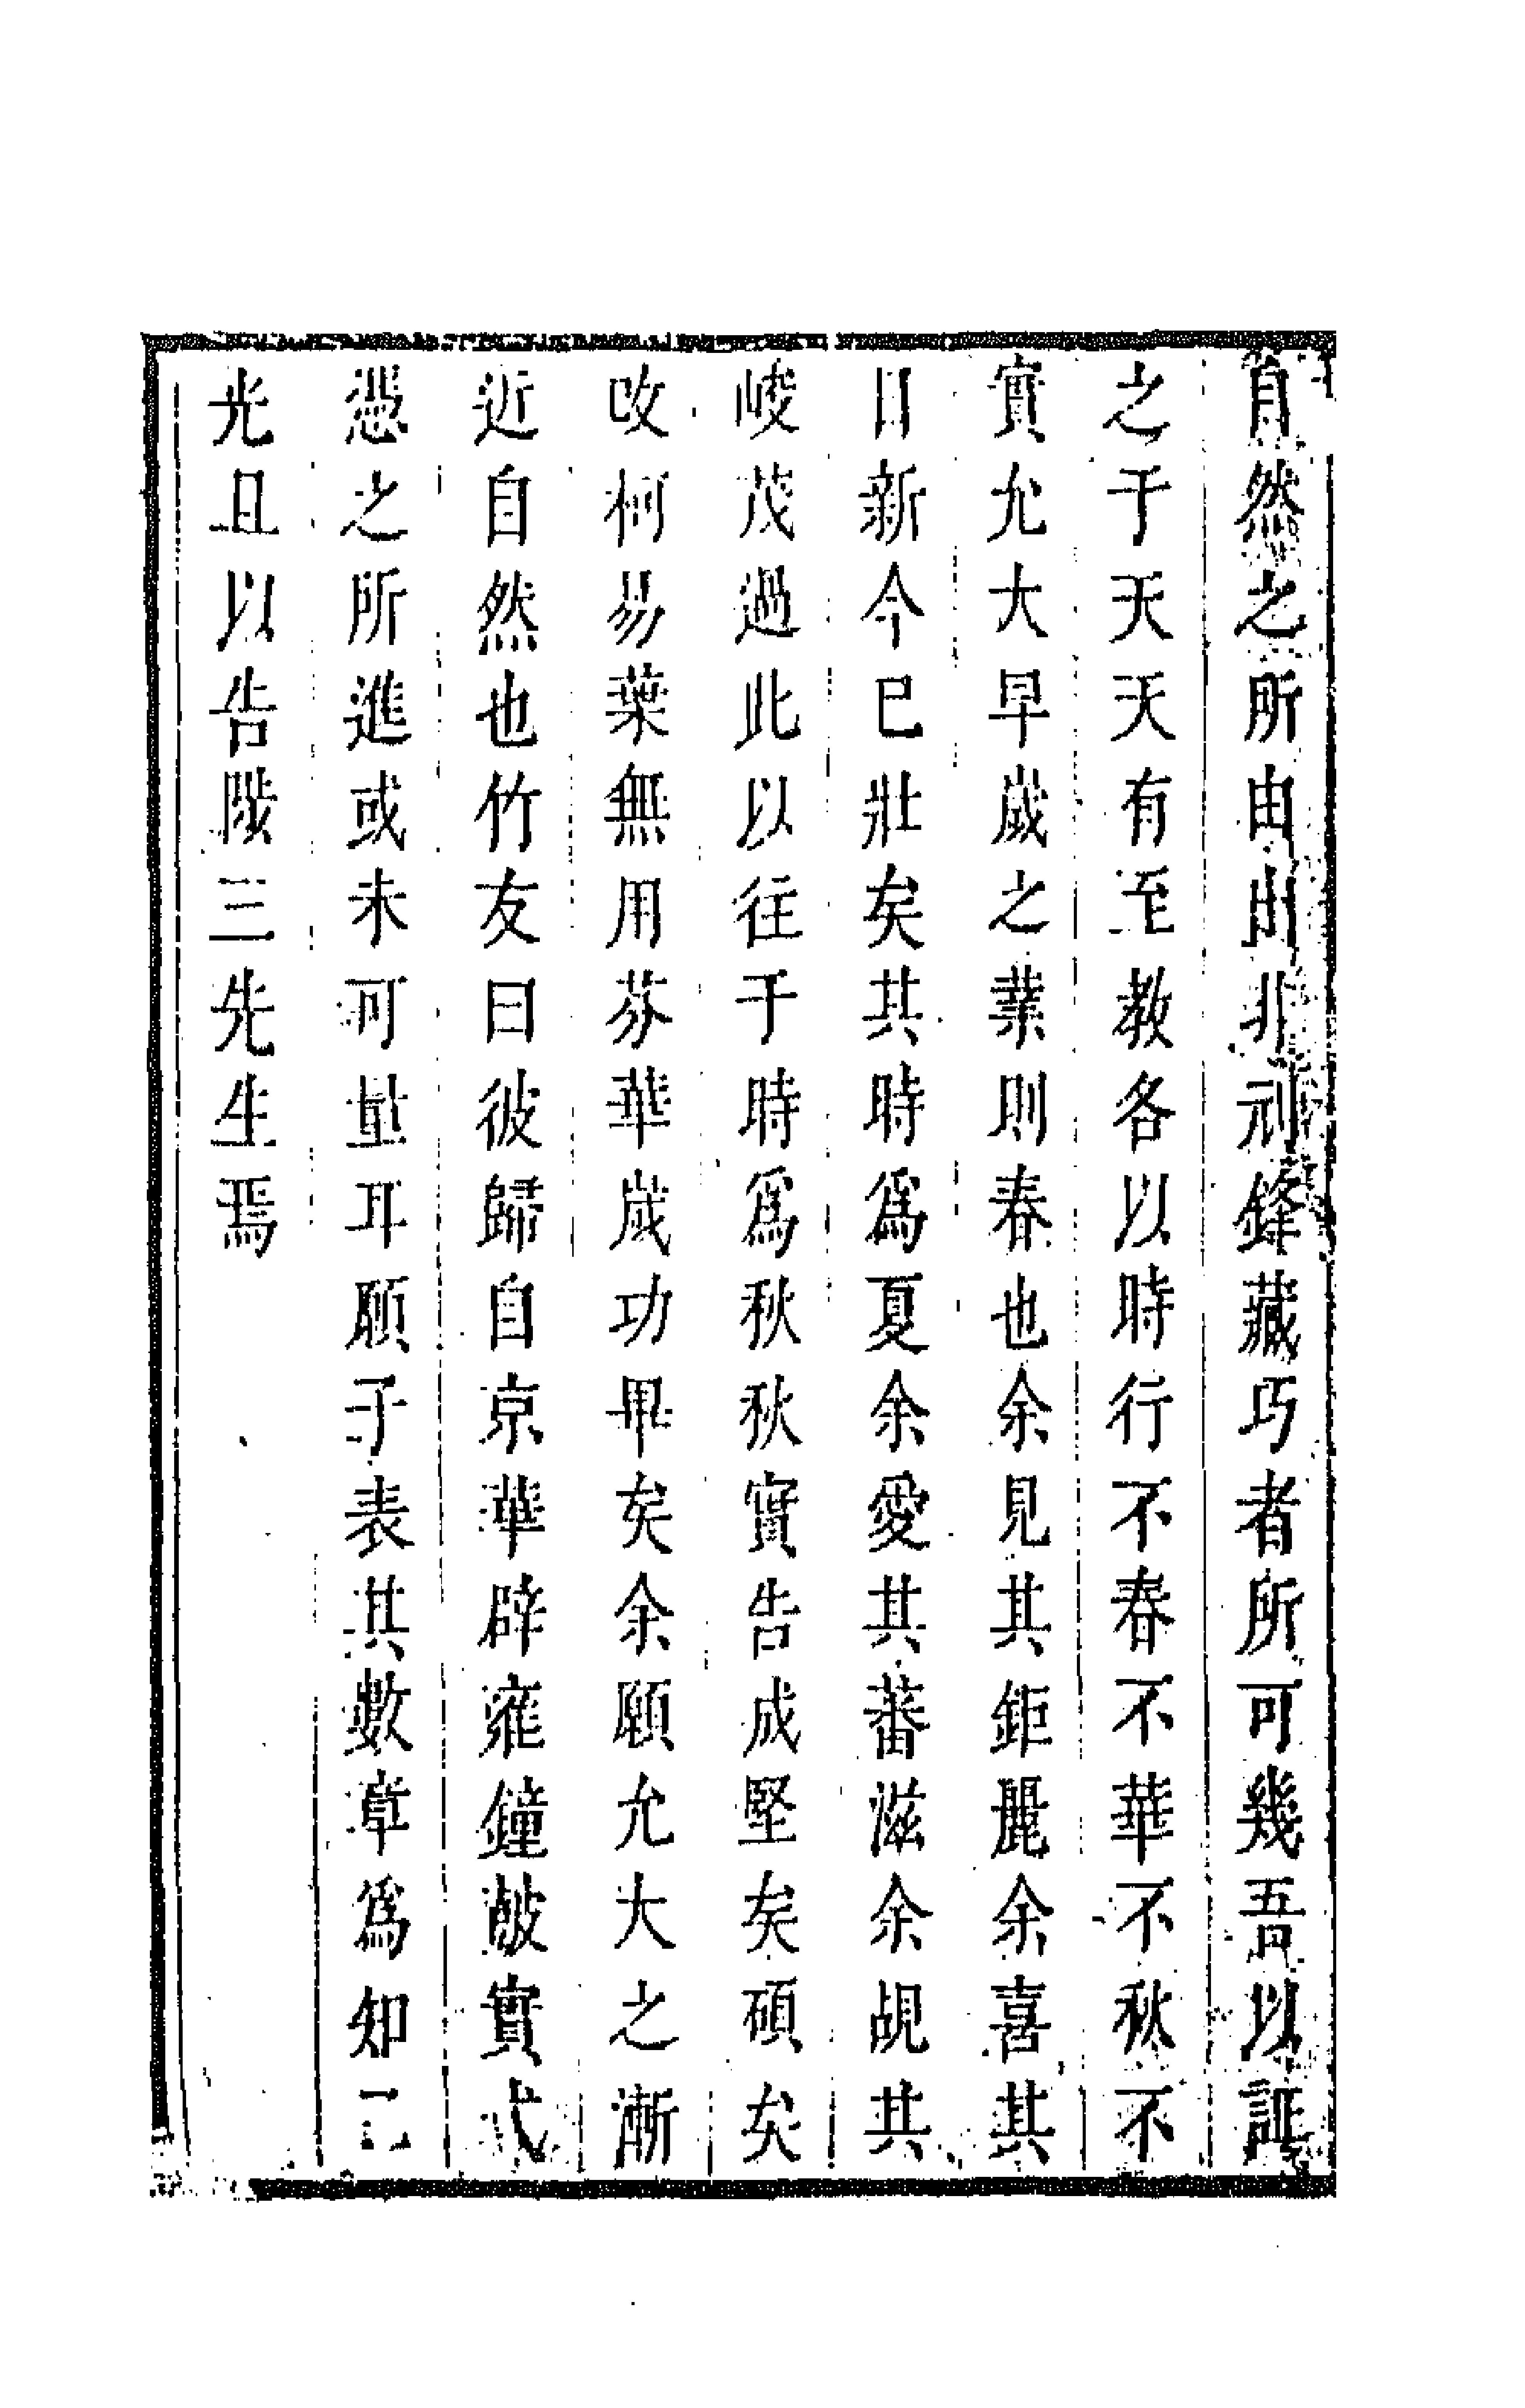 自然之所由由非利鋒藏巧者所可幾吾以証
之于天天有至教各以時行不春不華不秋不
實允大早歲之業則春也余見其鉅麗余喜其
日新今已壯矣其時爲夏余愛其蕃滋余覘其
峻茂過此以往于時爲秋秋實告成堅矣碩矣
攻柯易葉無用芬華歲功畢矣余願允大之漸
近自然也竹友曰彼歸自京華辟雍鐘皷實式
憑之所進或未可量耳願子表其數章爲知己
光且以告陵三先生焉